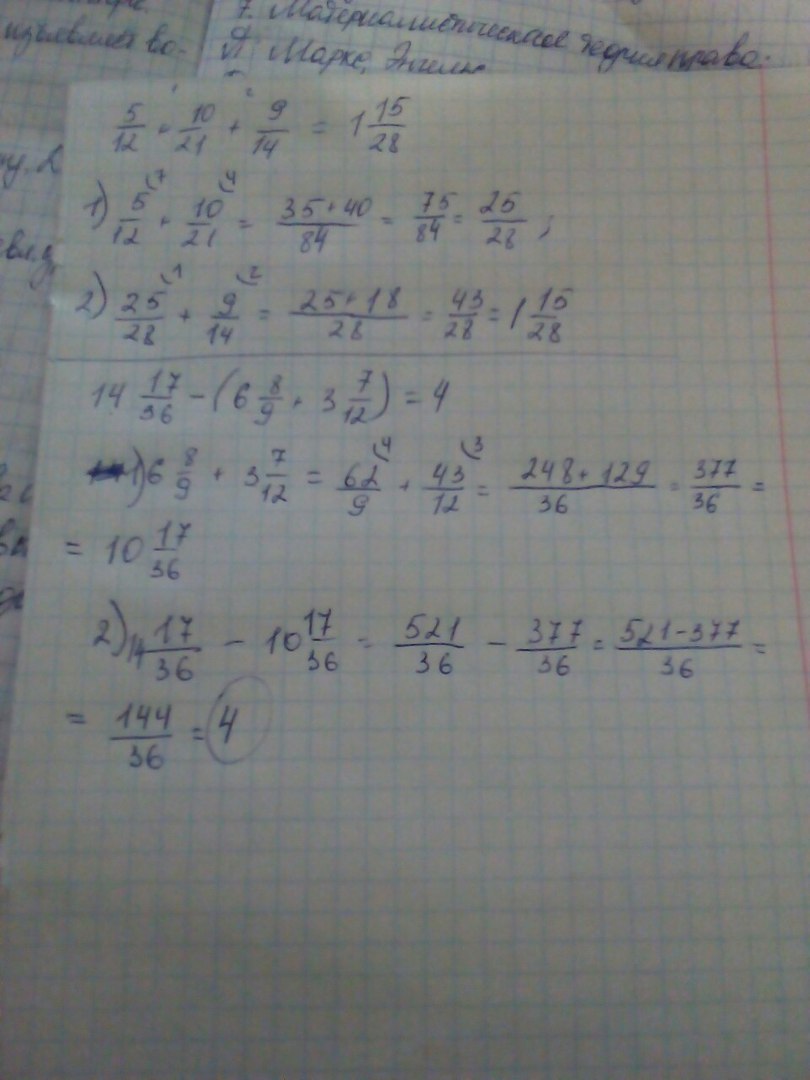 7. Материалистическая теория права.
К. Маркс, Энгельс
5/12 + 10/21 + 9/14 = 1 15/28
1) 5/12 (7 + 10/21 (4 = 35+40/84 = 75/84 = 25/28 ;
2) 25/28 (1 + 9/14 (2 = 25+18/28 = 43/28 = 1 15/28
14 17/36 - (6 8/9 + 3 7/12) = 4
1) 6 8/9 + 3 7/12 = 62/9 (4 + 43/12 (3 = 248+129/36 = 377/36 =
= 10 17/36
2) 14 17/36 - 10 17/36 = 521/36 - 377/36 = 521-377/36 =
= 144/36 = 4